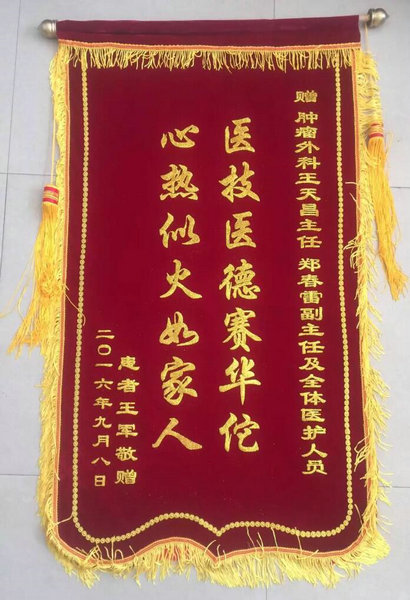 赠 肿瘤外科王天昌主任 郑春雷副主任及全体医护人员
医技医德赛华佗
心热似火如家人
患者王军敬赠
二〇一六年九月八日